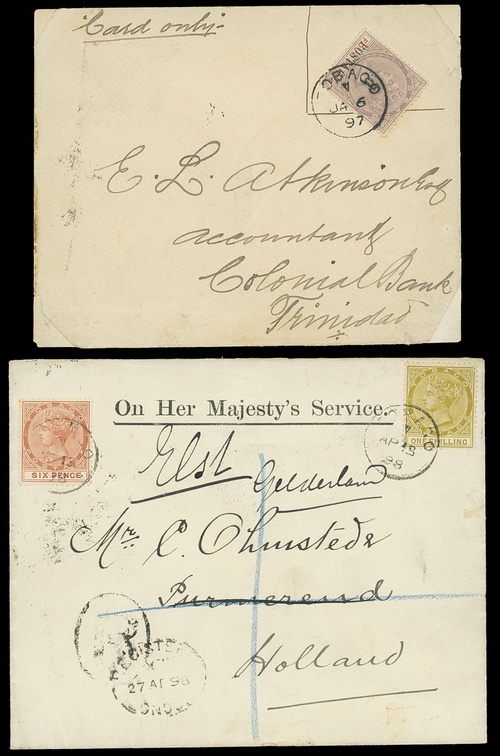 Card only
TOBAGO
A
JA 6
97
E. L. Atkinson Esq
Accountant
Colonial Bank
Trinidad
On Her Majesty's Service.
SIX PENCE
ONE SHILLING
TOBAGO
AP 13
98
Elst
Gelderland
Mr. C.
Purmerend
Holland
REGISTERED
27 AP 98